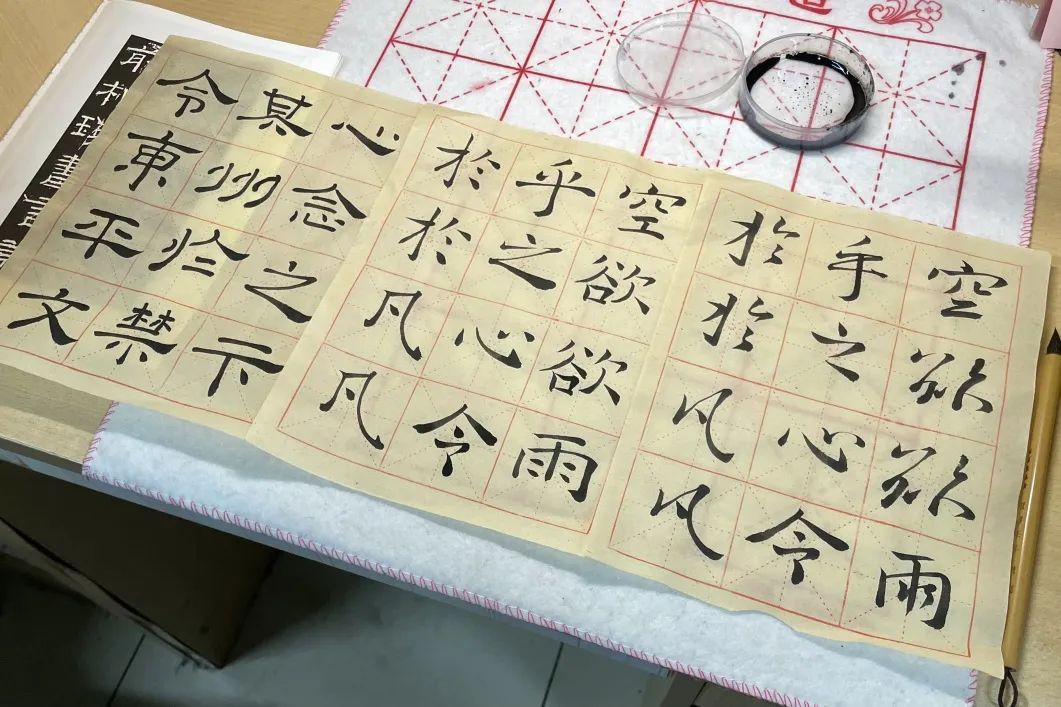 空欲欲雨
手之心令
於於凡凡
空欲欲雨
乎之心令
於於凡凡
心念之下
其州禁
令東平文
書